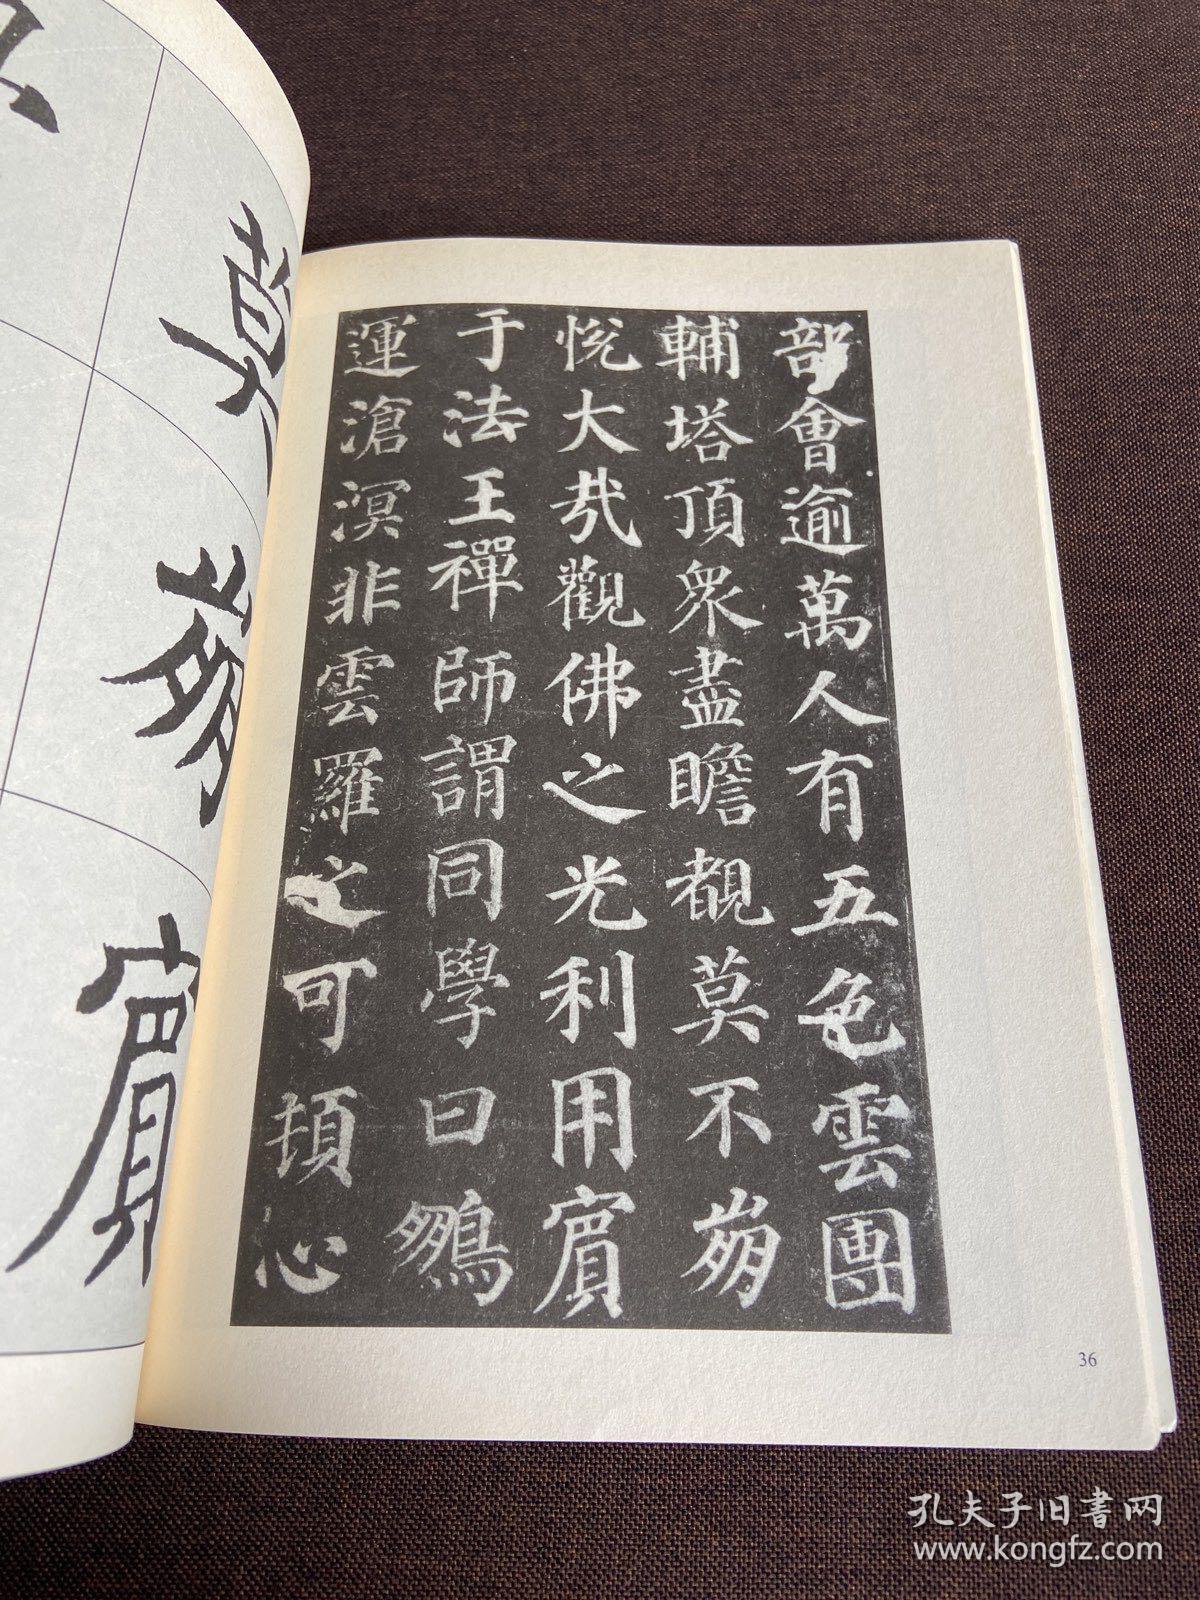 莫
崩
賓
部會逾萬人有五色雲團
輔塔頂眾盡瞻覩莫不崩
悅大哉觀佛之光利用賓
于法王禪師謂同學曰鵬
運滄溟非雲羅之可頓心
36
孔夫子旧書网
www.kongfz.com